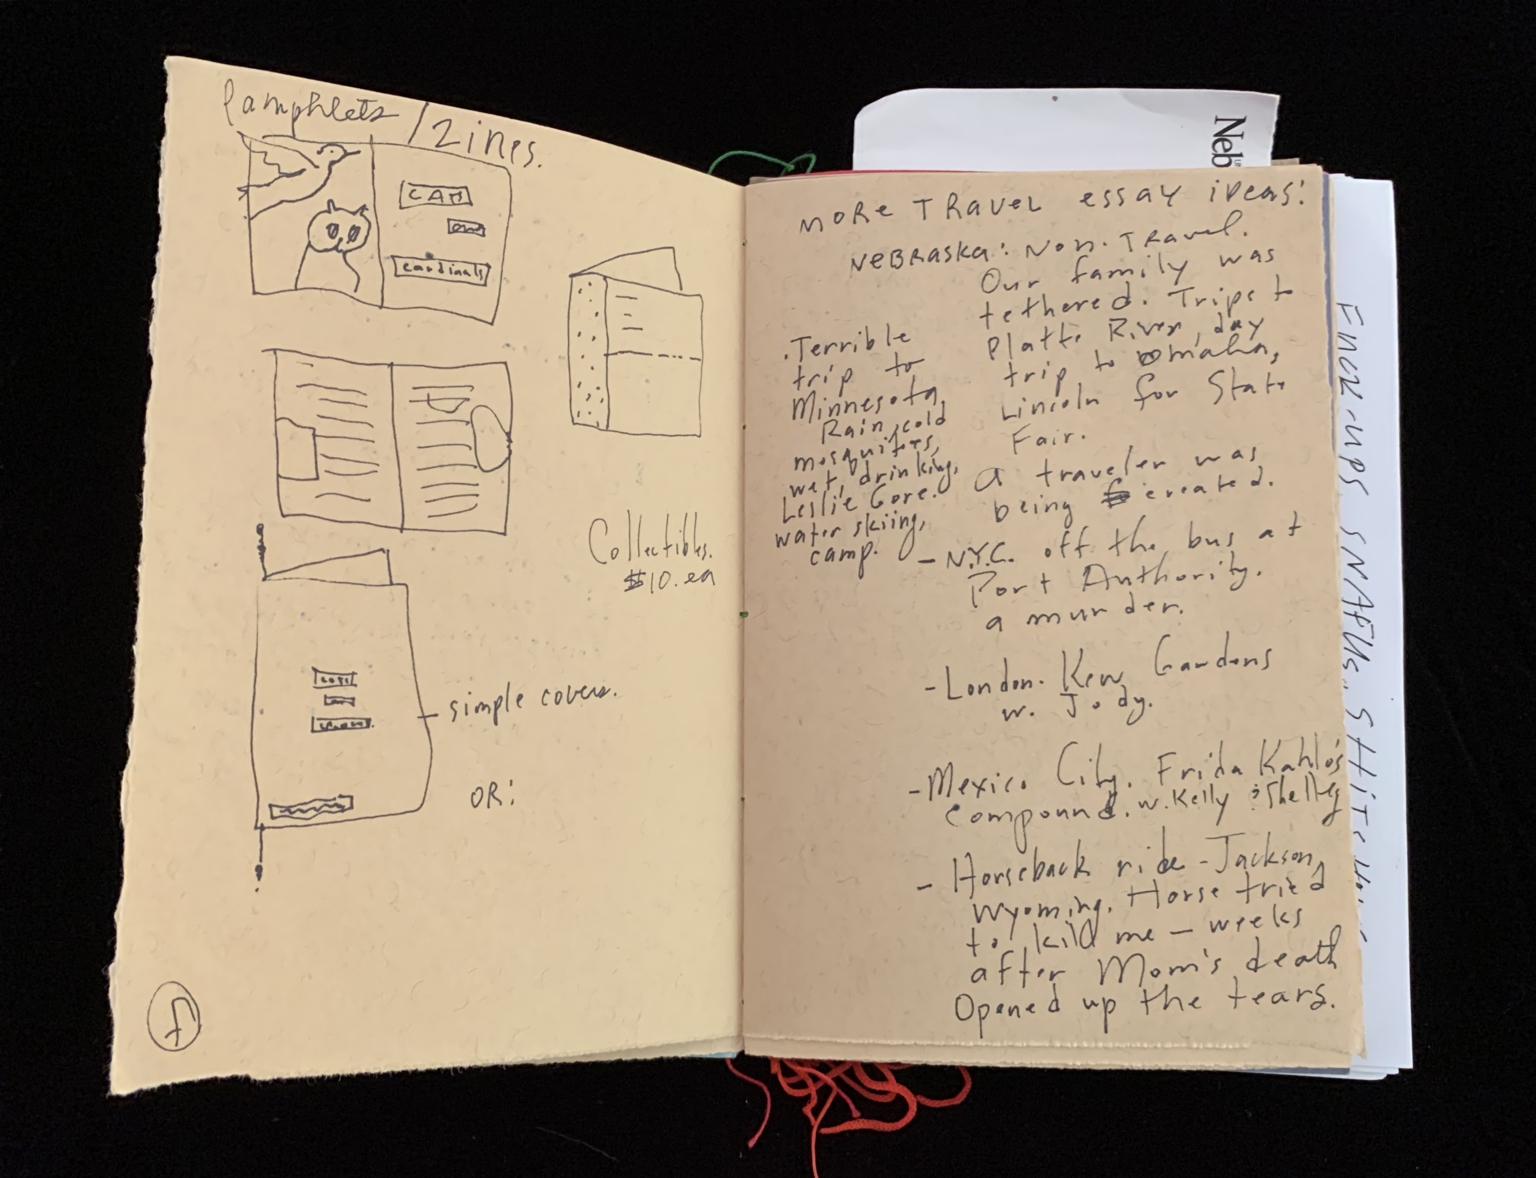 Pamphlets / Zines.
CAM
and
Cardinals
Collectibles.
$10. ea
simple covers.
OR:
MORE TRAVEL essay ideas:
NEBRASKA: Non-Travel.
Our family was
tethered. Trips to
Platte River, day
trip to Omaha,
Lincoln for State
Fair.
A traveler was
being created.
. Terrible
trip to
Minnesota.
Rain, cold
mosquitoes,
wet, drinking,
Leslie Gore.
water skiing,
camp.
- N.Y.C. off the bus at
Port Authority.
a murder.
- London. Kew Gardens
w. Jody.
- Mexico City. Frida Kahlo's
compound. w. Kelly & Shelley
- Horseback ride - Jackson,
Wyoming. Horse tried
to kill me - weeks
after Mom's death
Opened up the tears.
Neb
FUCK-UPS, SNAFUs,